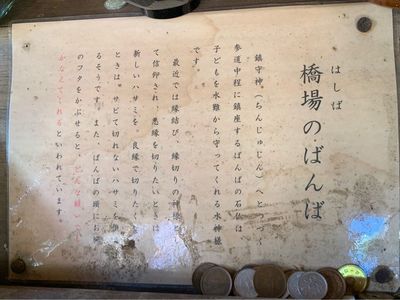 はしば
橋場のばんば
鎮守神(ちんじゅじん)へとつづく
参道中程に鎮座するばんばの石仏は
子どもを水難から守ってくれる水神様
です。
最近では縁結び、縁切りの神様
て信仰され、悪縁を切りたいときは
新しいハサミを、良縁で切りたく
ときは。サビて切れないハサミを
るそうです。また、ばんばの頭にお
のフタをかぶせると、どんな願い
かなえてくれるといわれています。